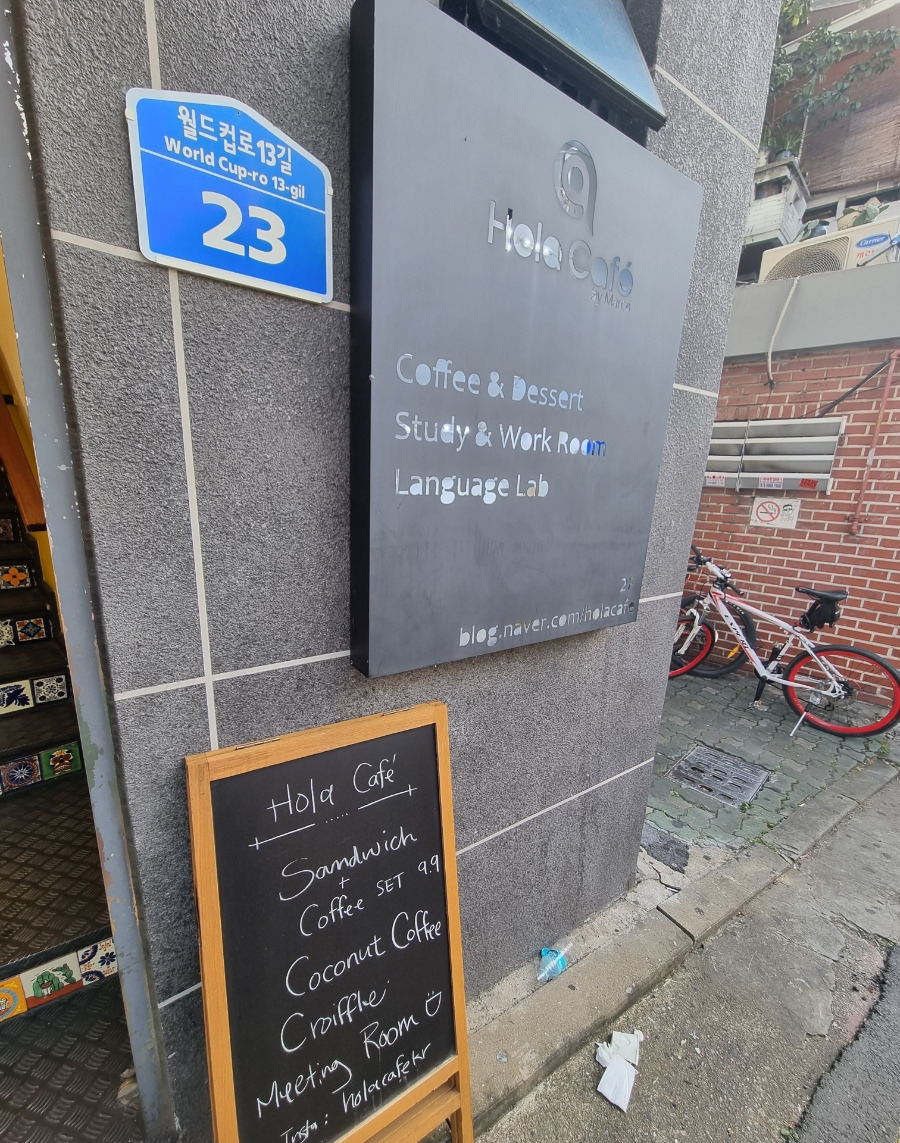 월드컵로13길
World Cup-ro 13-gil
23
Hola Café
by Maria
Coffee & Dessert
Study & Work Room
Language Lab
blog.naver.com/holacafe
Carrier
Hola Café
Sandwich
+
Coffee SET 9.9
Coconut Coffee
Croiffle
Meeting Room
Insta: holacafekr